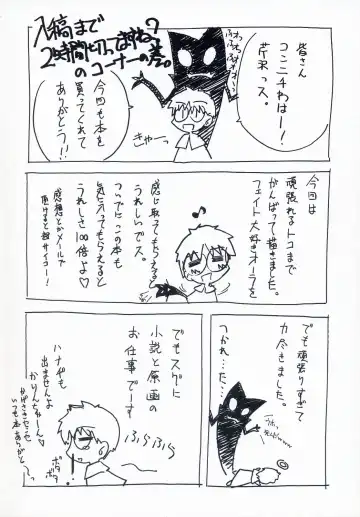 入稿まで
2時間切ってますね?
のコーナーの巻。
皆さん
コンニチわはー!
芹沢っス。
今回も本を
買ってくれて
ありがとう!!
きゃーっ
今回は
頑張れるトコまで
がんばって描きました。
フェイト大好きオーラを
感じ取ってもらえると
うれしいでス。
ついでにこの本も
気に入ってもらえると
うれしさ100倍よ♡
感想とかメールで
頂けると超サイコー!
♪
でも頑張りすぎて
力尽きました。
つかれ…た…
でもスグに
小説と原画の
お仕事でーす
ふらふら
ハナヂも
出ませんよ
かりんとちゅーん♡
いつも本ありがと
ボタボタ